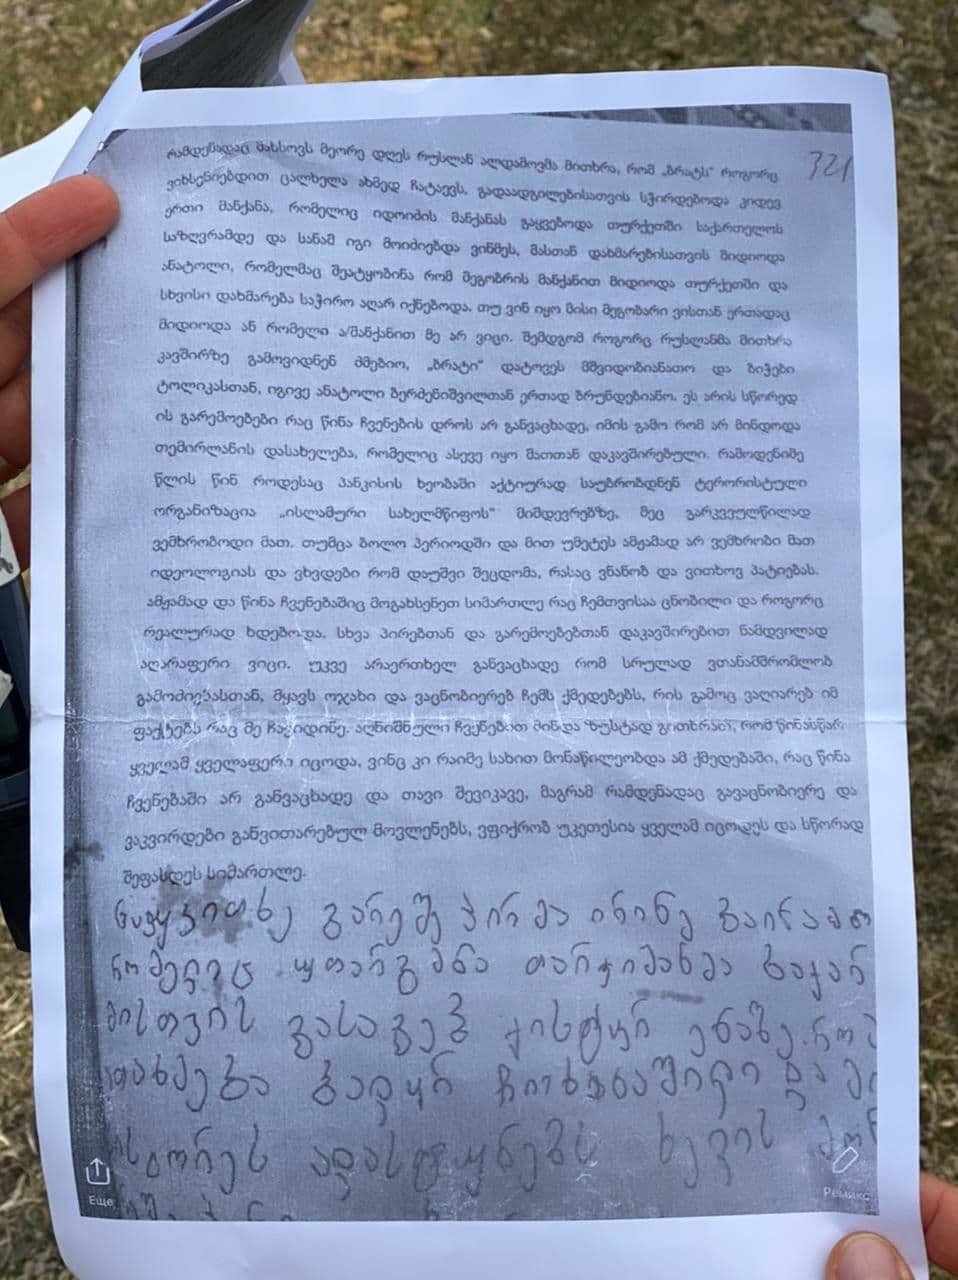 321
რამდენადაც მახსოვს მეორე დღეს რუსლან ალდამოვმა მითხრა, რომ „ბრატს“ როგორც
ვიხსენიებდით ცალხელა ახმედ ჩატაევს, გადაადგილებისათვის სჭირდებოდა კიდევ
ერთი მანქანა, რომელიც იდოიძის მანქანას გაყვებოდა თურქეთში საქართელოს
საზღვრამდე და სანამ იგი მოიძიებდა ვინმეს, მასთან დახმარებისათვის მიდიოდა
ანატოლი, რომელმაც შეატყობინა რომ მეგობრის მანქანით მიდიოდა თურქეთში და
სხვისი დახმარება საჭირო აღარ იქნებოდა. თუ ვინ იყო მისი მეგობარი ვისთან ერთადაც
მიდიოდა ან რომელი ა/მანქანით მე არ ვიცი. შემდგომ როგორც რუსლანმა მითხრა
კავშირზე გამოვიდნენ ძმებიო, „ბრატი“ დატოვეს მშვიდობიანათო და ბიჭები
ტოლიკასთან, იგივე ანატოლი ბერძენიშვილთან ერთად ბრუნდებიანო. ეს არის სწორედ
ის გარემოებები რაც წინა ჩვენების დროს არ განვაცხადე, იმის გამო რომ არ მინდოდა
თემირლანის დასახელება, რომელიც ასევე იყო მათთან დაკავშირებული. რამოდენიმე
წლის წინ როდესაც პანკისის ხეობაში აქტიურად საუბრობდნენ ტერორისტული
ორგანიზაცია „ისლამური სახელმწიფოს“ მიმდევრებზე, მეც გარკვეულწილად
ვემხრობოდი მათ. თუმცა ბოლო პერიოდში და მით უმეტეს ამჟამად არ ვემხრობი მათ
იდეოლოგიას და ვხვდები რომ დაუშვი შეცდომა, რასაც ვნანობ და ვითხოვ პატიებას.
ამჟამად და წინა ჩვენებაშიც მოგახსენეთ სიმართლე რაც ჩემთვისაა ცნობილი და როგორც
რეალურად ხდებოდა. სხვა პირებთან და გარემოებებთან დაკავშირებით ნამდვილად
აღარაფერი ვიცი. უკვე არაერთხელ განვაცხადე რომ სრულად ვთანამშრომლობ
გამოძიებასთან, მყავს ოჯახი და ვაცნობიერებ ჩემს ქმედებებს, რის გამოც ვაღიარებ იმ
ფაქტებს რაც მე ჩავიდინე. აღნიშნული ჩვენებით მინდა ზუსტად გითხრათ, რომ წინასწარ
ყველამ ყველაფერი იცოდა, ვინც კი რაიმე სახით მონაწილეობდა ამ ქმედებაში, რაც წინა
ჩვენებაში არ განვაცხადე და თავი შევიკავე, მაგრამ რამდენადაც გავაცნობიერე და
ვაკვირდები განვითარებულ მოვლენებს, ვფიქრობ უკეთესია ყველამ იცოდეს და სწორად
შეფასდეს სიმართლე.
გარეშე პირმა
რომელიც თარჯიმანმა
მისთვის გასაგებ ქისტურ ენაზე. რომ
და
ხელის
Еще
Ремикс